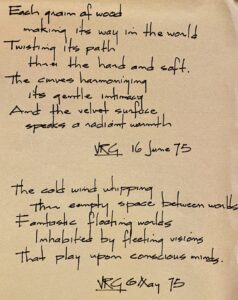 Each grain of wood
making its way in the world
Twisting its path
thru the hard and soft.
The curves harmonizing
its gentle intimacy
And the velvet surface
speaks a radiant warmth
VKG 16 June 75
The cold wind whipping
Thru empty space between worlds
Fantastic floating worlds
Inhabited by fleeting visions
That play upon conscious minds.
VKG 6 May 75